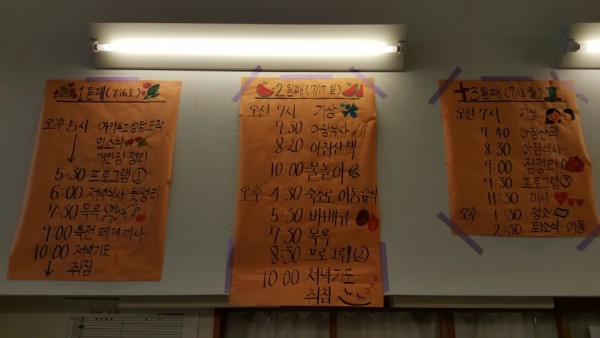 1일째(7/16토)
오후 5시 아가톡고성당도착
입소식
개인짐정리
5:30 프로그램①
6:00 저녁식사·뒷정리
7:30 목욕
9:00 특전 떼제 미사
10:00 저녁기도
취침
2일째(7/17 일)
오전 7시 기상
7:30 아침식사
8:20 아침산책
10:00 물놀이
오후 4:30 숙소로 이동·휴식
5:30 바베큐
7:30 목욕
8:50 프로그램②
10:00 저녁기도
취침
3일째(7/18 월)
오전 7시 기상
7:40 아침산책
8:30 아침식사
9:00 짐정리
9:30 프로그램③
11:30 미사
오후 1:30 청소
2:30 퇴소식·이동